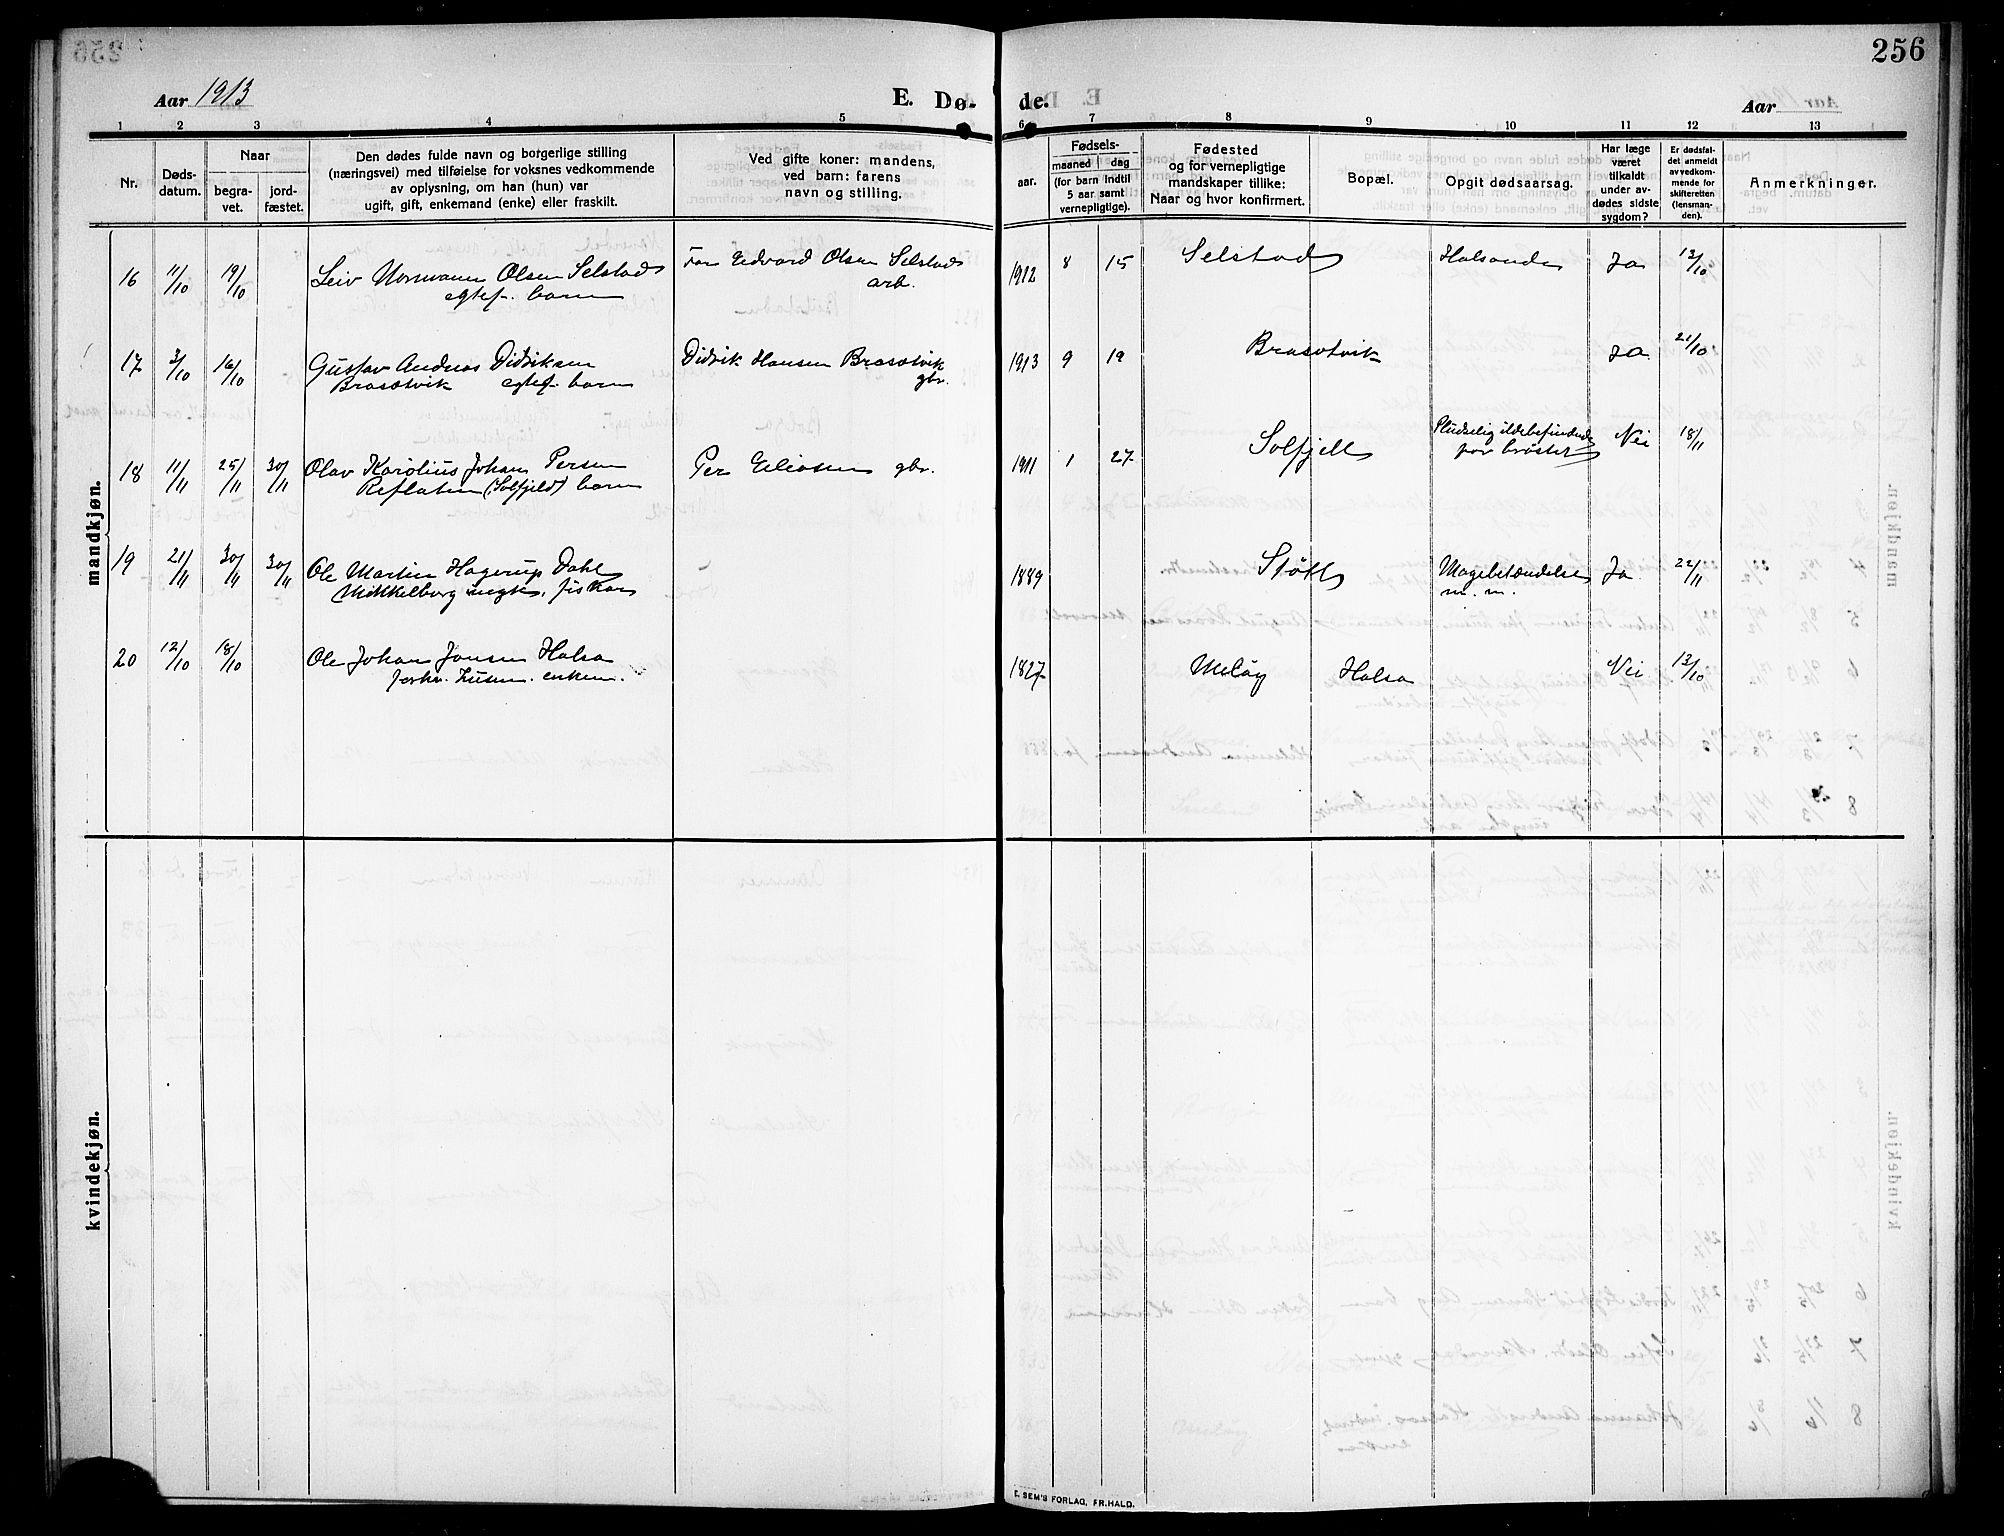 256
Aar 1913
E. Dø-
de.
Aar
1 2 3 4 5 6 7 8 9 10 11 12 13
Nr.
Døds-
datum.
Naar
begra-
vet.
jord-
fæstet.
Den dødes fulde navn og borgerlige stilling
(næringsvei) med tilføielse for voksnes vedkommende
av oplysning, om han (hun) var
ugift, gift, enkemand (enke) eller fraskilt.
Ved gifte koner: mandens,
ved barn: farens
navn og stilling.
Fødsels-
aar.
maaned dag
(for barn indtil
5 aar samt
vernepligtige).
Fødested
og for vernepligtige
mandskaper tillike:
Naar og hvor konfirmert.
Bopæl.
Opgit dødsaarsag.
Har læge
været
tilkaldt
under av-
dødes sidste
sygdom?
Er dødsfal-
det anmeldt
av vedkom-
mende for
skifteretten
(lensman-
den).
Anmerkninger.
mandkjøn.
16 11/10 19/10 Leiv Normann Olsen Selstad Far Edvard Olsen Selstad 1912 8 15 Selstad Halsonde Ja 12/10
egtef. barn arb.
17 3/10 16/10 Gustav Andreas Didriksen Didrik Hansen Brasetvik 1913 9 19 Brasetvik Ja 21/10
Brasetvik egtef. barn gbr.
18 11/11 25/11 30/11 Olav Karolius Johan Persen Per Eliasen gbr. 1911 1 27 Solfjell Pludselig ildebefindende Nei 18/11
(Solfjeld) barn for brystet
19 21/11 30/11 30/11 Ole Martin Hagerup Dahl 1889 Støtt Magebetændelse Ja 22/11
Mikkelborg ungk. fisker m. m.
20 12/10 18/10 Ole Johan Jansen Halsa 1827 Meløy Halsa Nei 13/10
forhv. enkem.
kvindekjøn.
E. SEM'S FORLAG, FR.HALD.